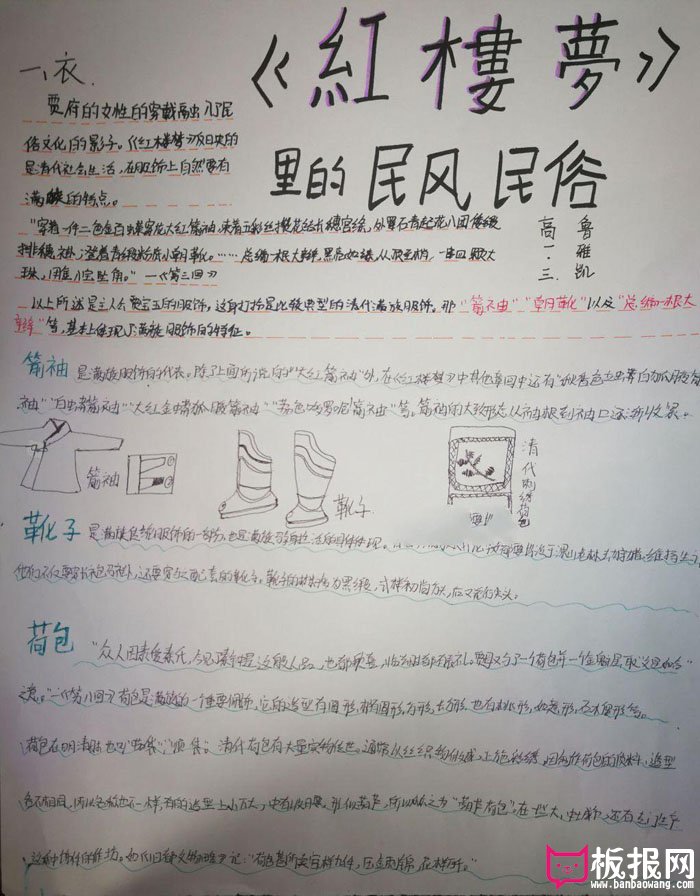 《紅樓夢》
里的民风民俗
高一.三
鲁雅凯
一、衣.
贾府的女性的穿戴高出了民
俗文化的影子。《红楼梦》反映的
是清代社会生活，在服饰上自然要有
满族的特点。
"穿着一件二色金百蝶穿花大红箭袖，束着五彩丝攒花结长穗宫绦，外罩石青起花八团倭缎
排穗褂，登着青缎粉底小朝靴。……总编一根大辫，黑亮如漆，从顶至梢，一串四颗大
珠，用金八宝坠角。"一《第三回》
以上所述是主人公贾宝玉的服饰，这身打扮是比较典型的清代满族服饰。那"箭袖""朝靴"以及"总编一根大
辫"等，基本上体现了满族服饰的特征。
箭袖 是满族服饰的代表。除了上面所说的"大红箭袖"外，在《红楼梦》中其他章回中还有
袖""白蟒箭袖""大红金蟒狐腋箭袖" 箭袖"等。箭袖的大致形态从袖根到袖口逐渐收紧
箭袖
靴子
清代刺绣荷包
靴子 是满族传统服饰的一部分，也是满族 生活的具体体现。
他们不仅要穿长袍马褂，还要穿与之配套的靴子。靴子的材料为黑缎，式样初尚方头，后又流行尖头。
荷包 "众人因素爱秦氏，今见秦钟是这般人品，也都欢喜，临别时都有表礼。贾母又与了一个荷包并一个金魁星，取"文星和合"
之意。"一《第八回》荷包是满族的一种重要佩饰，它的造型有圆形，椭圆形，方形，长方形，也有桃形，如意形，石榴形等。
荷包在明清时也叫 清代荷包有大量实物传世。通常以丝织物做成，上施彩绣，因制作荷包的质料、造型
各不相同，所以名称也不一样，有的造型上小下大，中有收腰，形似葫芦，所以称之为"葫芦荷包"，在一些大、中城市，还有专门生产
板报网
www.banbaowang.com